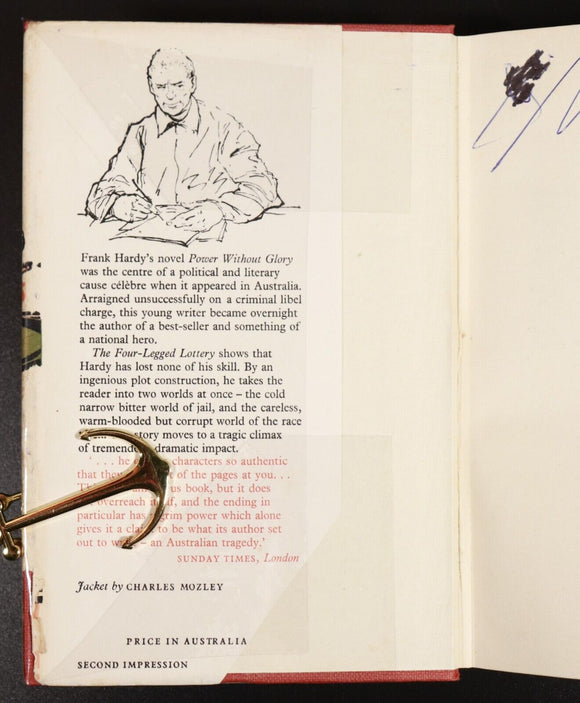 Frank Hardy's novel Power Without Glory
was the centre of a political and literary
cause célèbre when it appeared in Australia.
Arraigned unsuccessfully on a criminal libel
charge, this young writer became overnight
the author of a best-seller and something of
a national hero.
The Four-Legged Lottery shows that
Hardy has lost none of his skill. By an
ingenious plot construction, he takes the
reader into two worlds at once – the cold
narrow bitter world of jail, and the careless,
warm-blooded but corrupt world of the race
story moves to a tragic climax
of dramatic impact.
'. . . he characters so authentic
that of the pages at you. . .
us book, but it does
overreach and the ending in
particular has grim power which alone
gives it a to be what its author set
out to – an Australian tragedy.'
SUNDAY TIMES, London
Jacket by CHARLES MOZLEY
PRICE IN AUSTRALIA
SECOND IMPRESSION